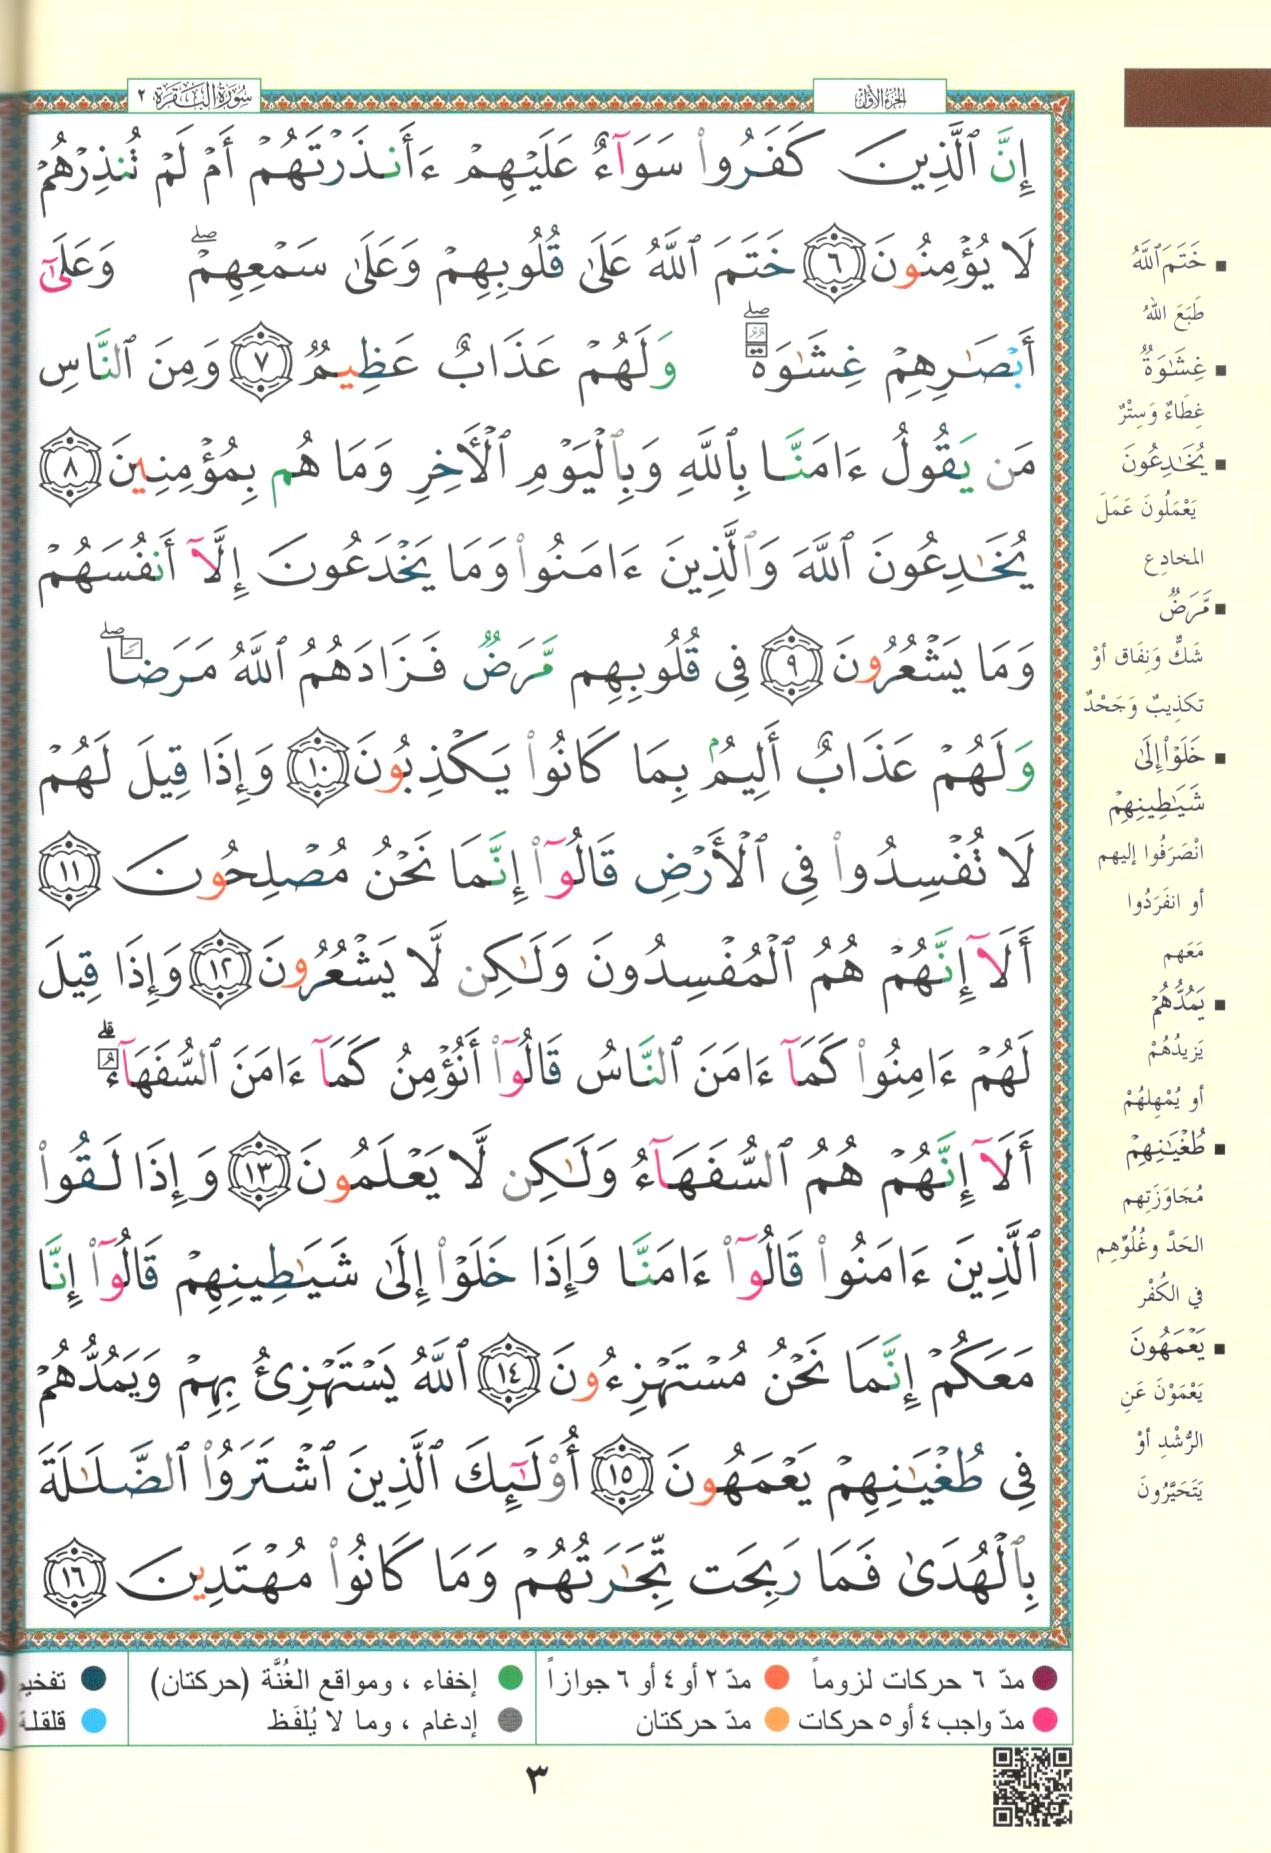 سُورَةُ البَقَرَة ٢
الجُزءُ الأَوَّلُ
إِنَّ ٱلَّذِينَ كَفَرُوا۟ سَوَآءٌ عَلَيْهِمْ ءَأَنذَرْتَهُمْ أَمْ لَمْ تُنذِرْهُمْ
لَا يُؤْمِنُونَ ٦ خَتَمَ ٱللَّهُ عَلَىٰ قُلُوبِهِمْ وَعَلَىٰ سَمْعِهِمْ ۖ وَعَلَىٰٓ
أَبْصَـٰرِهِمْ غِشَـٰوَةٌ ۖ وَلَهُمْ عَذَابٌ عَظِيمٌ ٧ وَمِنَ ٱلنَّاسِ
مَن يَقُولُ ءَامَنَّا بِٱللَّهِ وَبِٱلْيَوْمِ ٱلْـَٔاخِرِ وَمَا هُم بِمُؤْمِنِينَ ٨
يُخَـٰدِعُونَ ٱللَّهَ وَٱلَّذِينَ ءَامَنُوا۟ وَمَا يَخْدَعُونَ إِلَّآ أَنفُسَهُمْ
وَمَا يَشْعُرُونَ ٩ فِى قُلُوبِهِم مَّرَضٌ فَزَادَهُمُ ٱللَّهُ مَرَضًا ۖ
وَلَهُمْ عَذَابٌ أَلِيمٌۢ بِمَا كَانُوا۟ يَكْذِبُونَ ١٠ وَإِذَا قِيلَ لَهُمْ
لَا تُفْسِدُوا۟ فِى ٱلْأَرْضِ قَالُوٓا۟ إِنَّمَا نَحْنُ مُصْلِحُونَ ١١
أَلَآ إِنَّهُمْ هُمُ ٱلْمُفْسِدُونَ وَلَـٰكِن لَّا يَشْعُرُونَ ١٢ وَإِذَا قِيلَ
لَهُمْ ءَامِنُوا۟ كَمَآ ءَامَنَ ٱلنَّاسُ قَالُوٓا۟ أَنُؤْمِنُ كَمَآ ءَامَنَ ٱلسُّفَهَآءُ ۗ
أَلَآ إِنَّهُمْ هُمُ ٱلسُّفَهَآءُ وَلَـٰكِن لَّا يَعْلَمُونَ ١٣ وَإِذَا لَقُوا۟
ٱلَّذِينَ ءَامَنُوا۟ قَالُوٓا۟ ءَامَنَّا وَإِذَا خَلَوْا۟ إِلَىٰ شَيَـٰطِينِهِمْ قَالُوٓا۟ إِنَّا
مَعَكُمْ إِنَّمَا نَحْنُ مُسْتَهْزِءُونَ ١٤ ٱللَّهُ يَسْتَهْزِئُ بِهِمْ وَيَمُدُّهُمْ
فِى طُغْيَـٰنِهِمْ يَعْمَهُونَ ١٥ أُو۟لَـٰٓئِكَ ٱلَّذِينَ ٱشْتَرَوُا۟ ٱلضَّلَـٰلَةَ
بِٱلْهُدَىٰ فَمَا رَبِحَت تِّجَـٰرَتُهُمْ وَمَا كَانُوا۟ مُهْتَدِينَ ١٦
خَتَمَ ٱللَّهُ
طَبَعَ اللهُ
غِشَـٰوَةٌ
غِطَاءٌ وَسِتْرٌ
يُخَـٰدِعُونَ
يَعْمَلُونَ عَمَلَ
المخادِع
مَّرَضٌ
شَكٌّ وَنِفَاق أوْ
تكذِيبٌ وَجَحْدٌ
خَلَوْا۟ إِلَىٰ
شَيَـٰطِينِهِمْ
انْصَرَفُوا إليهم
أو انفَرَدُوا
مَعَهم
يَمُدُّهُمْ
يَزيدُهُمْ
أو يُمْهِلهُمْ
طُغْيَـٰنِهِمْ
مُجَاوَزَتِهم
الحَدَّ وغُلُوِّهِم
في الكُفْر
يَعْمَهُونَ
يَعْمَوْنَ عَنِ
الرُّشْدِ أوْ
يَتَحَيَّرُونَ
مدّ ٦ حركات لزوماً مدّ ٢ أو ٤ أو ٦ جوازاً
مدّ واجب ٤ أو ٥ حركات مدّ حركتان
إخفاء ، ومواقع الغُنَّة (حركتان)
إدغام ، وما لا يُلفَظ
تفخيم
قلقلة
٣